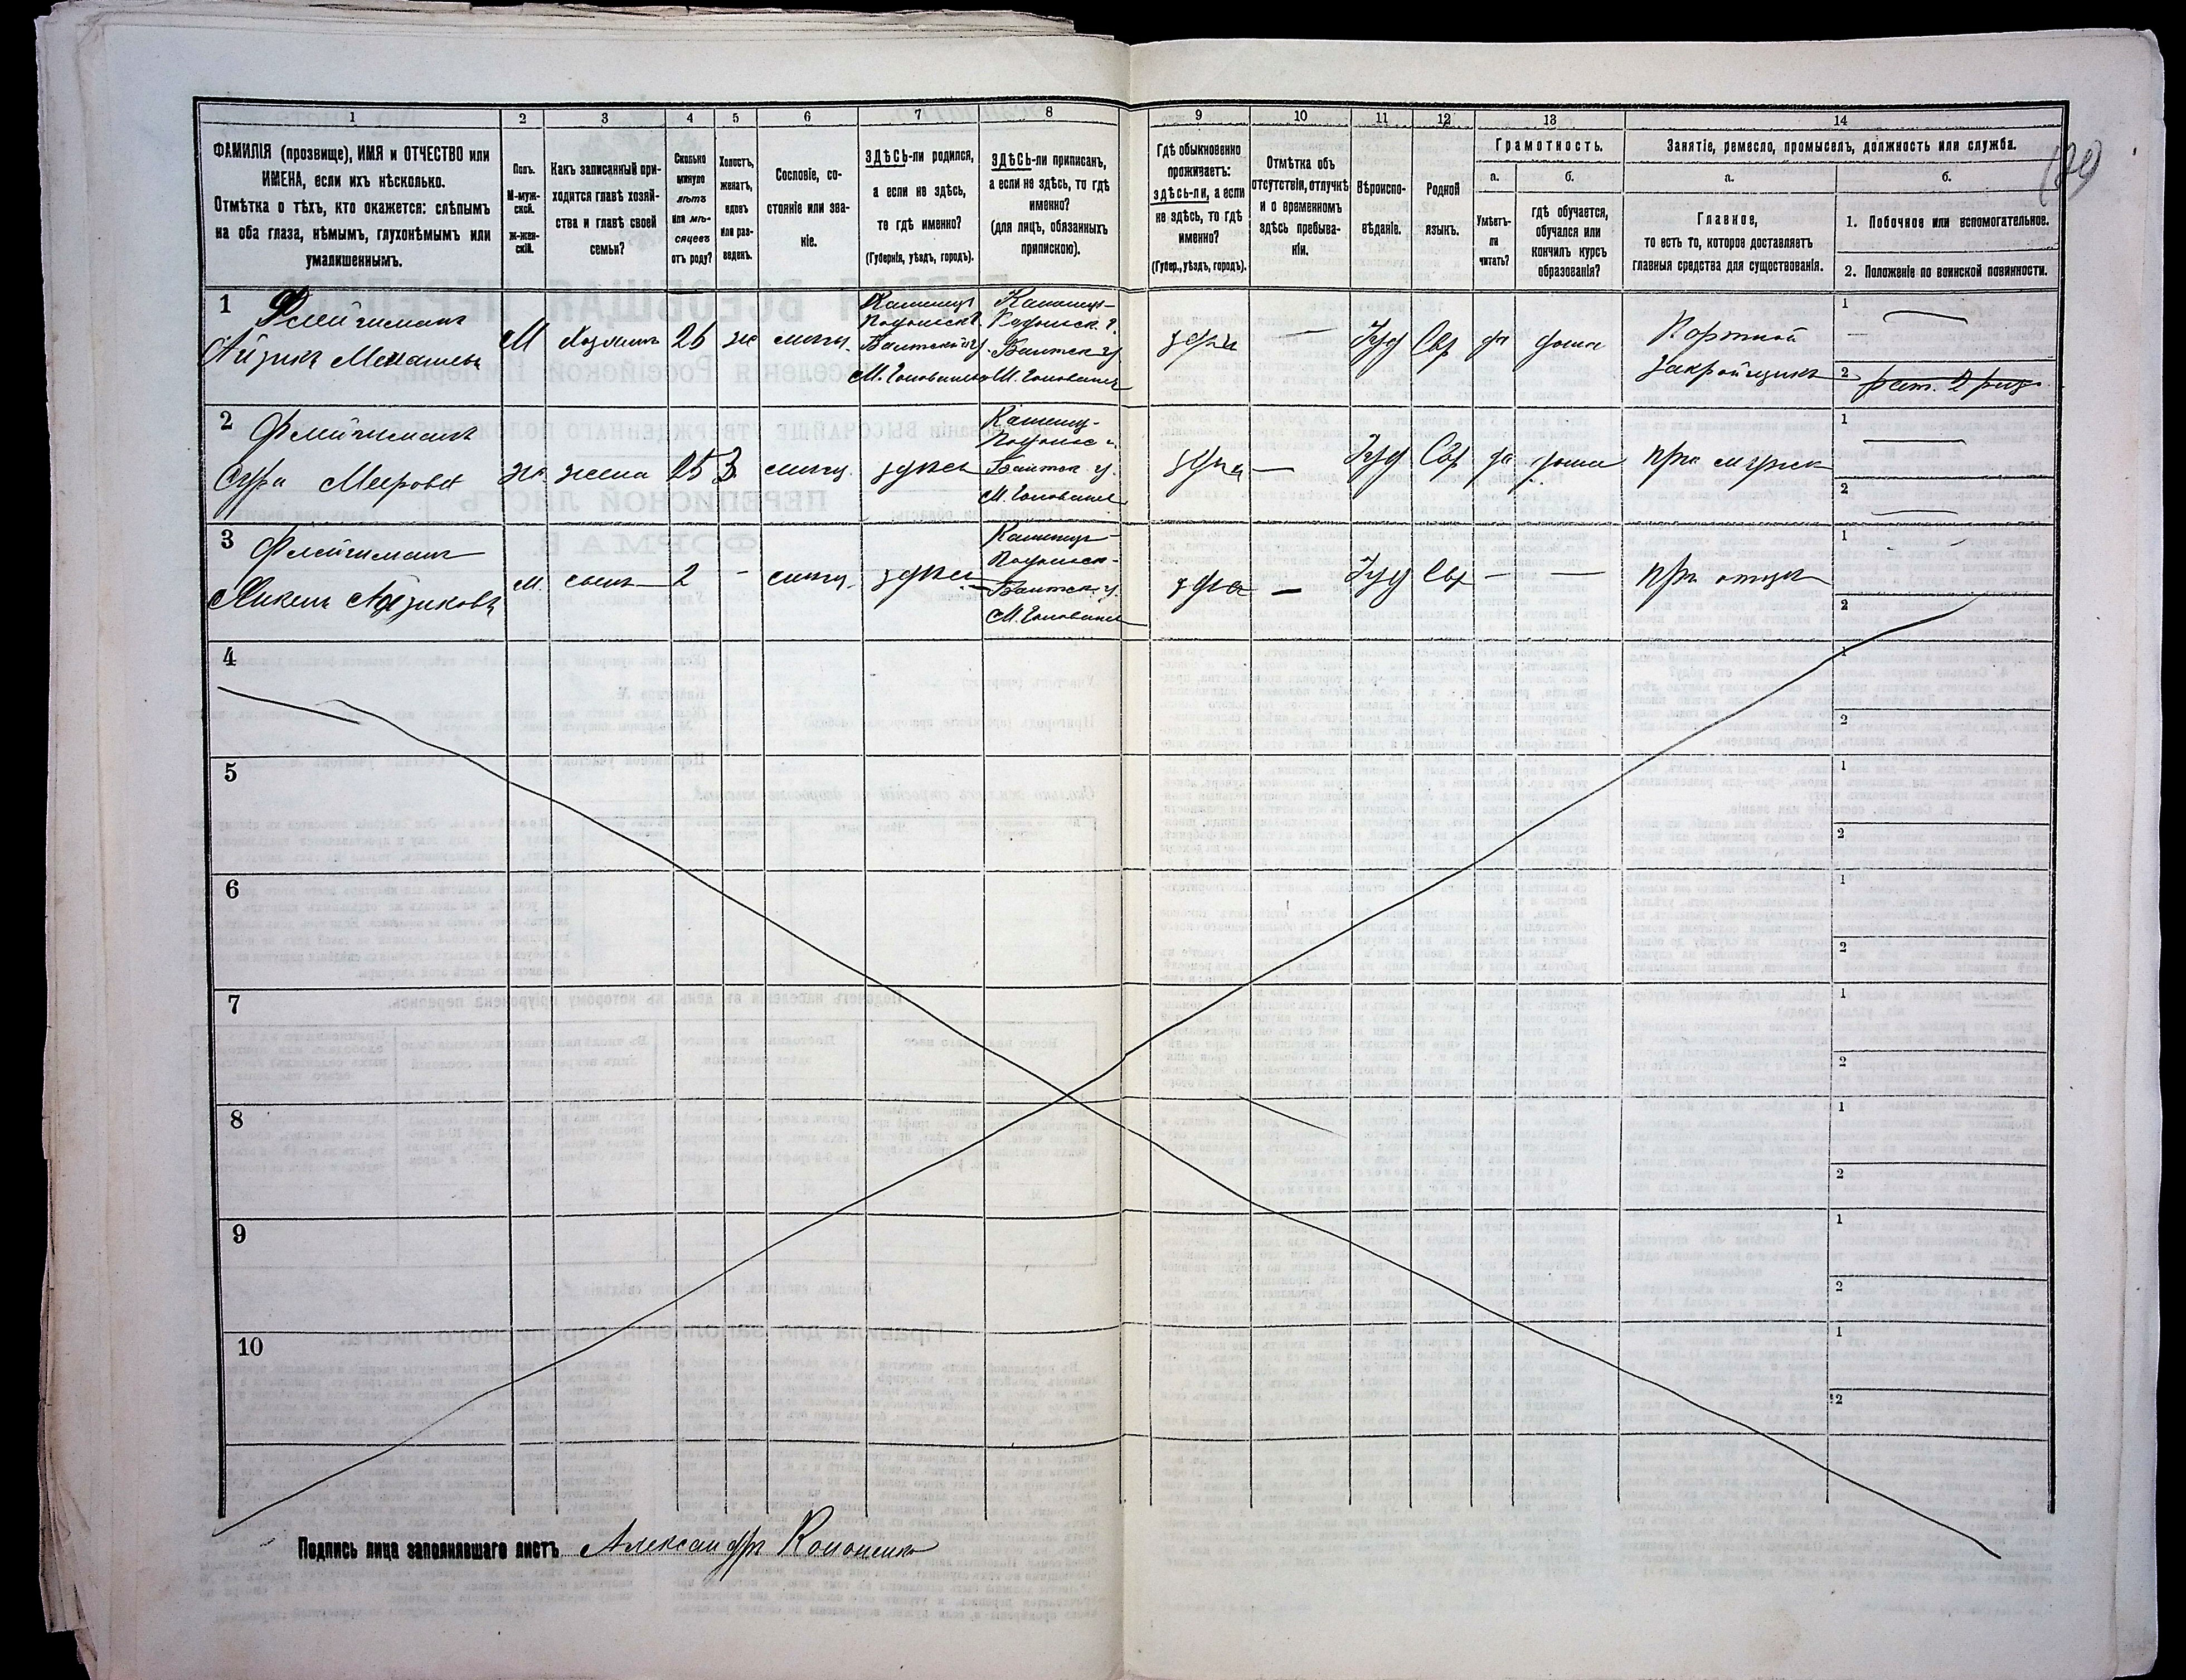 1 2 3 4 5 6 7 8 9 10 11 12 13 14
ФАМИЛІЯ (прозвище), ИМЯ и ОТЧЕСТВО или
ИМЕНА, если ихъ нѣсколько.
Отмѣтка о тѣхъ, кто окажется: слѣпымъ
на оба глаза, нѣмымъ, глухонѣмымъ или
умалишеннымъ.
Полъ.
М-муж-
ской.
Ж-жен-
скій.
Какъ записанный при-
ходится главѣ хозяй-
ства и главѣ своей
семьи?
Сколько
минуло
лѣтъ
или мѣ-
сяцевъ
отъ роду?
Холостъ,
женатъ,
вдовъ
или раз-
веденъ.
Сословіе, со-
стояніе или зва-
ніе.
ЗДѢСЬ-ли родился,
а если не здѣсь,
то гдѣ именно?
(Губернія, уѣздъ, городъ).
ЗДѢСЬ-ли приписанъ,
а если не здѣсь, то гдѣ
именно?
(для лицъ, обязанныхъ
припискою).
Гдѣ обыкновенно
проживаетъ:
здѣсь-ли, а если
не здѣсь, то гдѣ
именно?
(Губер., уѣздъ, городъ).
Отмѣтка объ
отсутствіи, отлучкѣ
и о временномъ
здѣсь пребыва-
ніи.
Вѣроиспо-
вѣданіе.
Родной
языкъ.
Грамотность.
а.
Умѣетъ-
ли
читать?
б.
гдѣ обучается,
обучался или
кончилъ курсъ
образованія?
Занятіе, ремесло, промыселъ, должность или служба.
а.
Главное,
то есть то, которое доставляетъ
главныя средства для существованія.
б.
1. Побочное или вспомогательное.
2. Положеніе по воинской повинности.
1 Флейшманъ
Айзикъ Менашевъ
М Хозяинъ 26 же
Каменец
Подольск г
Балтской у
М. Голованевс
Каменец-
Подольск. г.
Балтск у
М. Голованев
здѣсь — Іуд Евр да дома
Портной
закройщикъ
1
2
2 Флейшманъ
Сура Меерова
жс. жена 25 З. здѣсь
Каменец-
Подольс г.
Балтск у.
М. Голованев
здѣсь — Іуд Евр да дома при мужѣ
1
2
3 Флейшманъ
Айзиковъ
м. сынъ 2 - здѣсь
Каменец-
Подольск-
Балтск. у.
М. Голованев
здѣсь — Іуд Евр — — при отцѣ
1
2
4
1
2
5
1
2
6
1
2
7
1
2
8
1
2
9
1
2
10
1
2
Подпись лица заполнявшаго листъ Александръ Кононенко